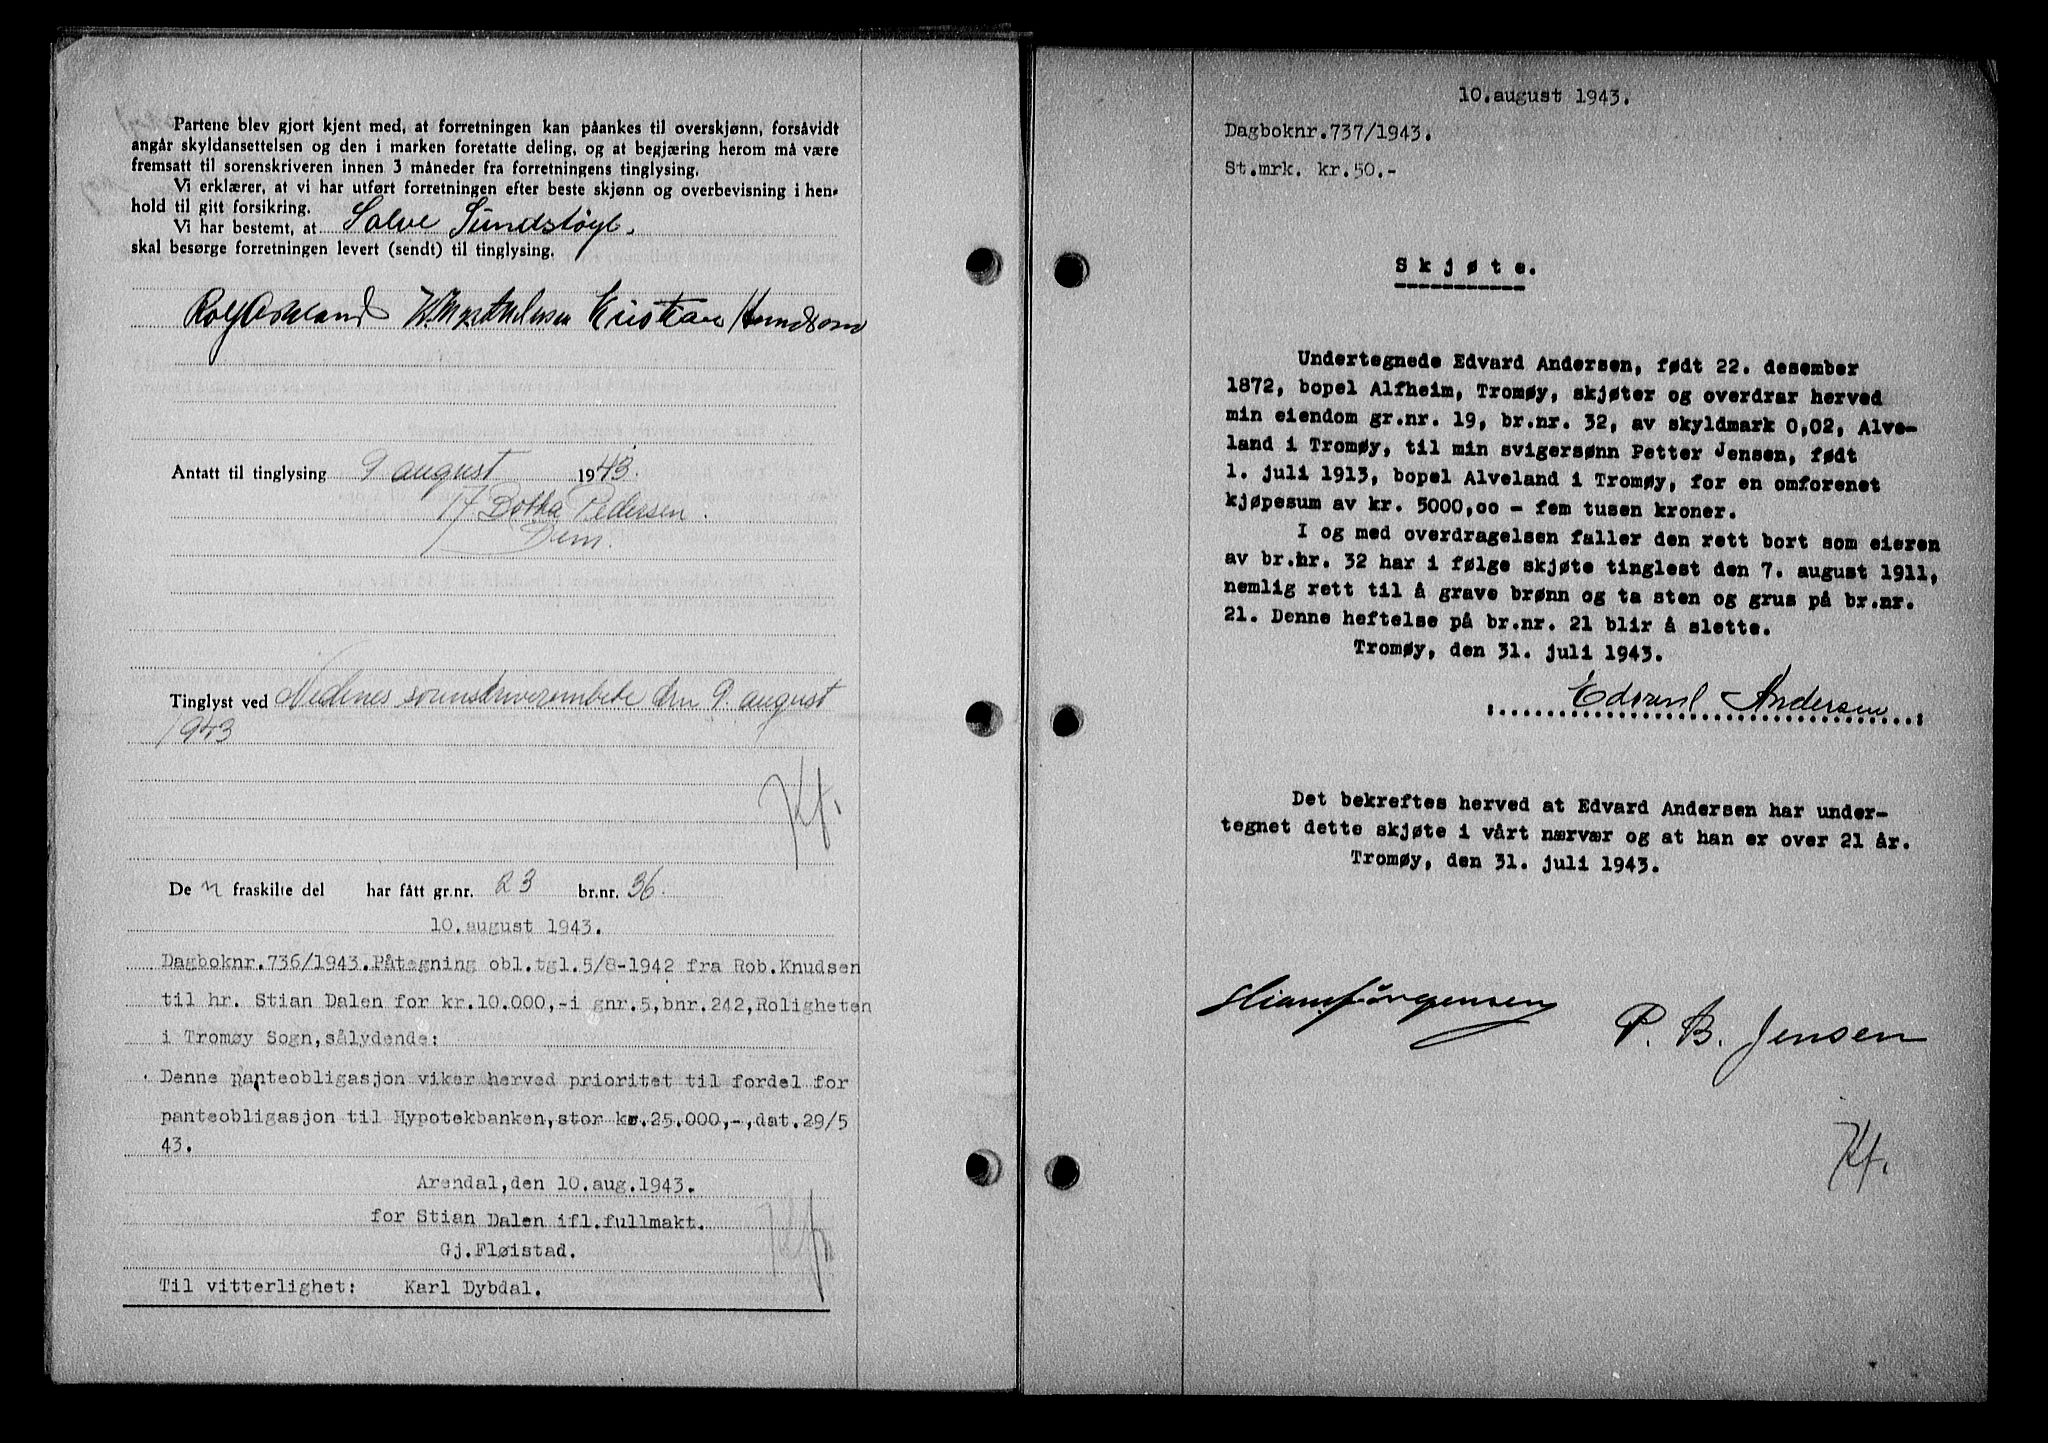 Partene blev gjort kjent med, at forretningen kan påankes til overskjønn, forsåvidt
angår skyldansettelsen og den i marken foretatte deling, og at begjæring herom må være
fremsatt til sorenskriveren innen 3 måneder fra forretningens tinglysing.
Vi erklærer, at vi har utført forretningen efter beste skjønn og overbevisning i hen-
hold til gitt forsikring.
Vi har bestemt, at Salve Sundstøyl.
skal besørge forretningen levert (sendt) til tinglysing.
Kristian
Antatt til tinglysing 9 august 1943.
Botha Pedersen.
Tinglyst ved Nedenes sorenskriverembete den 9. august
1943
Kf.
De n fraskilte del har fått gr.nr. 23 br.nr. 36.
10.august 1943.
Dagboknr.736/1943.Påtegning obl.tgl.5/8-1942 fra Rob.Knudsen
til hr. Stian Dalen for kr.10.000,-i gnr.5,bnr.242,Roligheten
i Tromøy Sogn,sålydende:
Denne panteobligasjon viker herved prioritet til fordel for
panteobligasjon til Hypotekbanken,stor kr.25.000,-,dat.29/5
43.
Arendal,den 10.aug.1943.
for Stian Dalen ifl.fullmakt.
Gj.Fløistad.
Til vitterlighet: Karl Dybdal.
Kf.
10.august 1943.
Dagboknr.737/1943.
St.mrk. kr.50.-
Skjøte.
Undertegnede Edvard Andersen, født 22. desember
1872, bopel Alfheim, Tromøy, skjøter og overdrar herved
min eiendom gr.nr. 19, br.nr. 32, av skyldmark 0,02, Alve-
land i Tromøy, til min svigersønn Petter Jensen, født
1. juli 1913, bopel Alveland i Tromøy, for en omforenet
kjøpesum av kr. 5000,00 - fem tusen kroner.
I og med overdragelsen faller den rett bort som eieren
av br.nr. 32 har i følge skjøte tinglest den 7. august 1911,
nemlig rett til å grave brønn og ta sten og grus på br.nr.
21. Denne heftelse på br.nr. 21 blir å slette.
Tromøy, den 31. juli 1943.
Edvard Andersen
Det bekreftes herved at Edvard Andersen har under-
tegnet dette skjøte i vårt nærvær og at han er over 21 år.
Tromøy, den 31. juli 1943.
Jørgensen
P. B. Jensen
Kf.